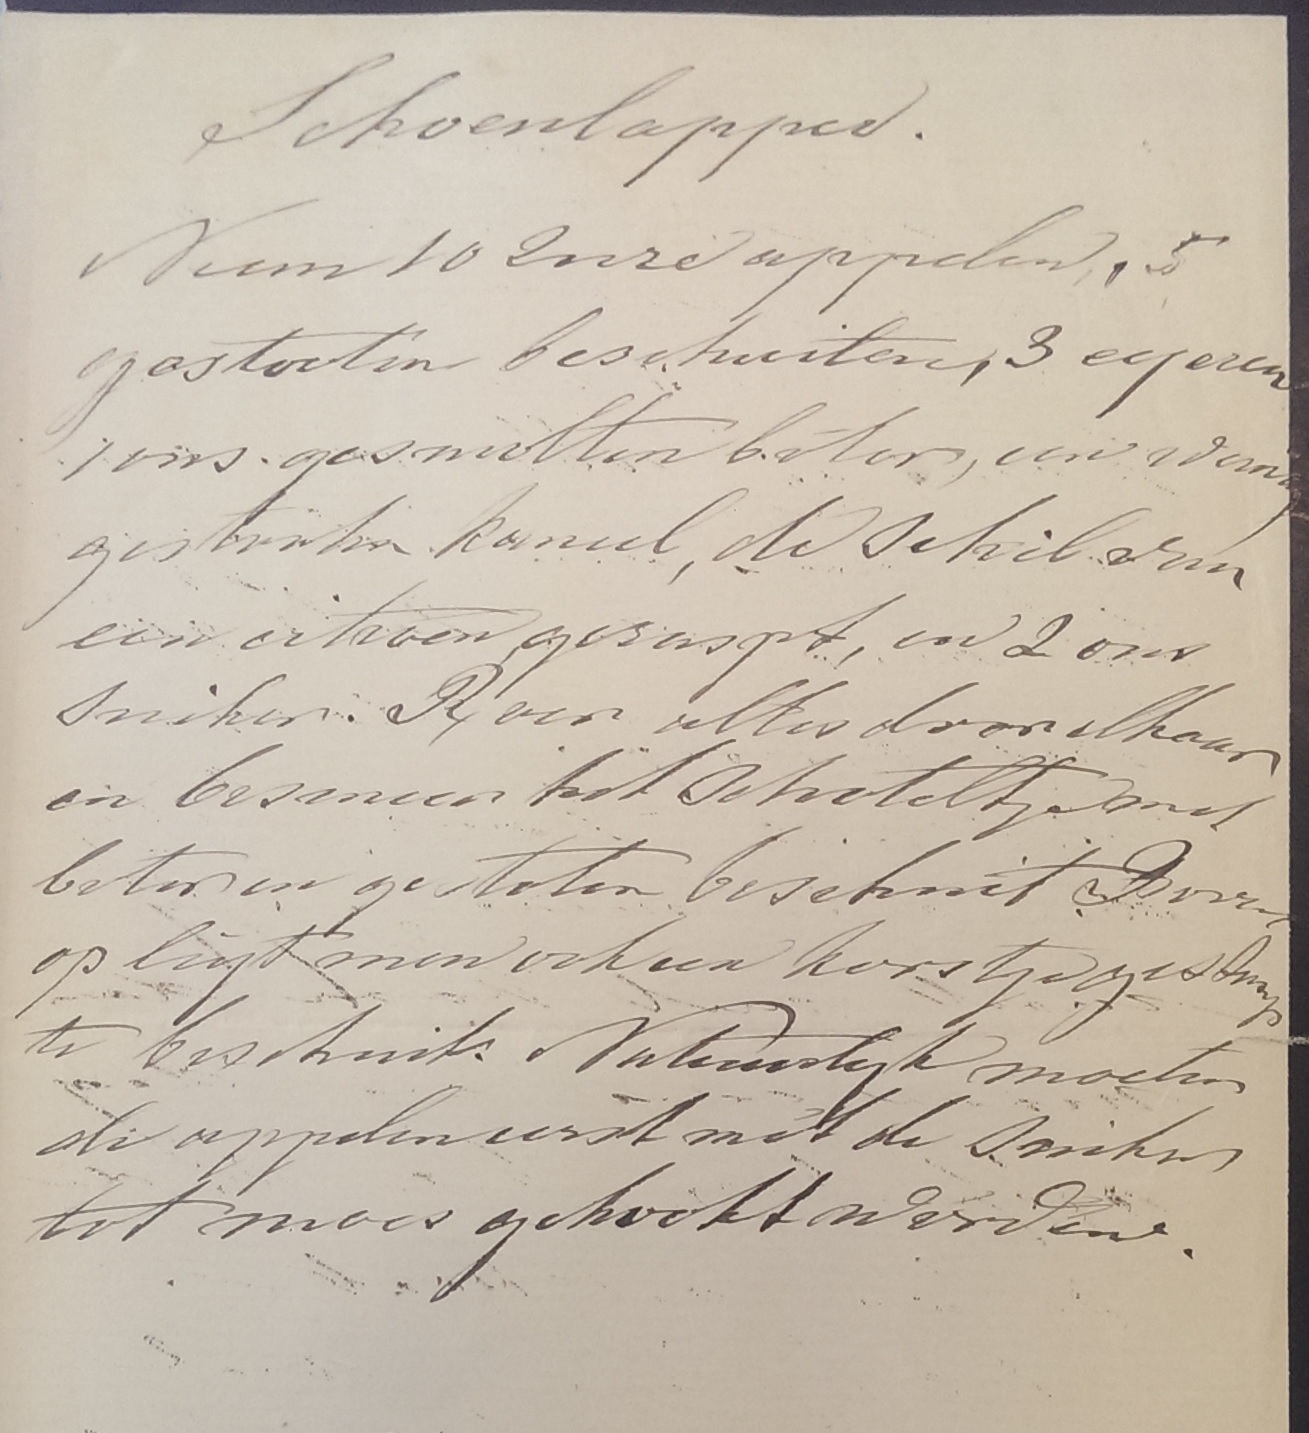 Schoenlappen.
Neem 10 zure appelen, 5
gestooten beschuiten, 3 eyeren
1 ons gesmolten boter, een weinig
gestooten kaneel, de schil van
een citroen geraspt, en 2 ons
suiker. Roer alles door elkaar
en besmeer het schoteltje met
boter en gestoten beschuit Boven
op legt men ook een korstje gestamp
te beschuit. Natuurlyk moeten
de appelen eerst met de suiker
tot moes gekookt worden.